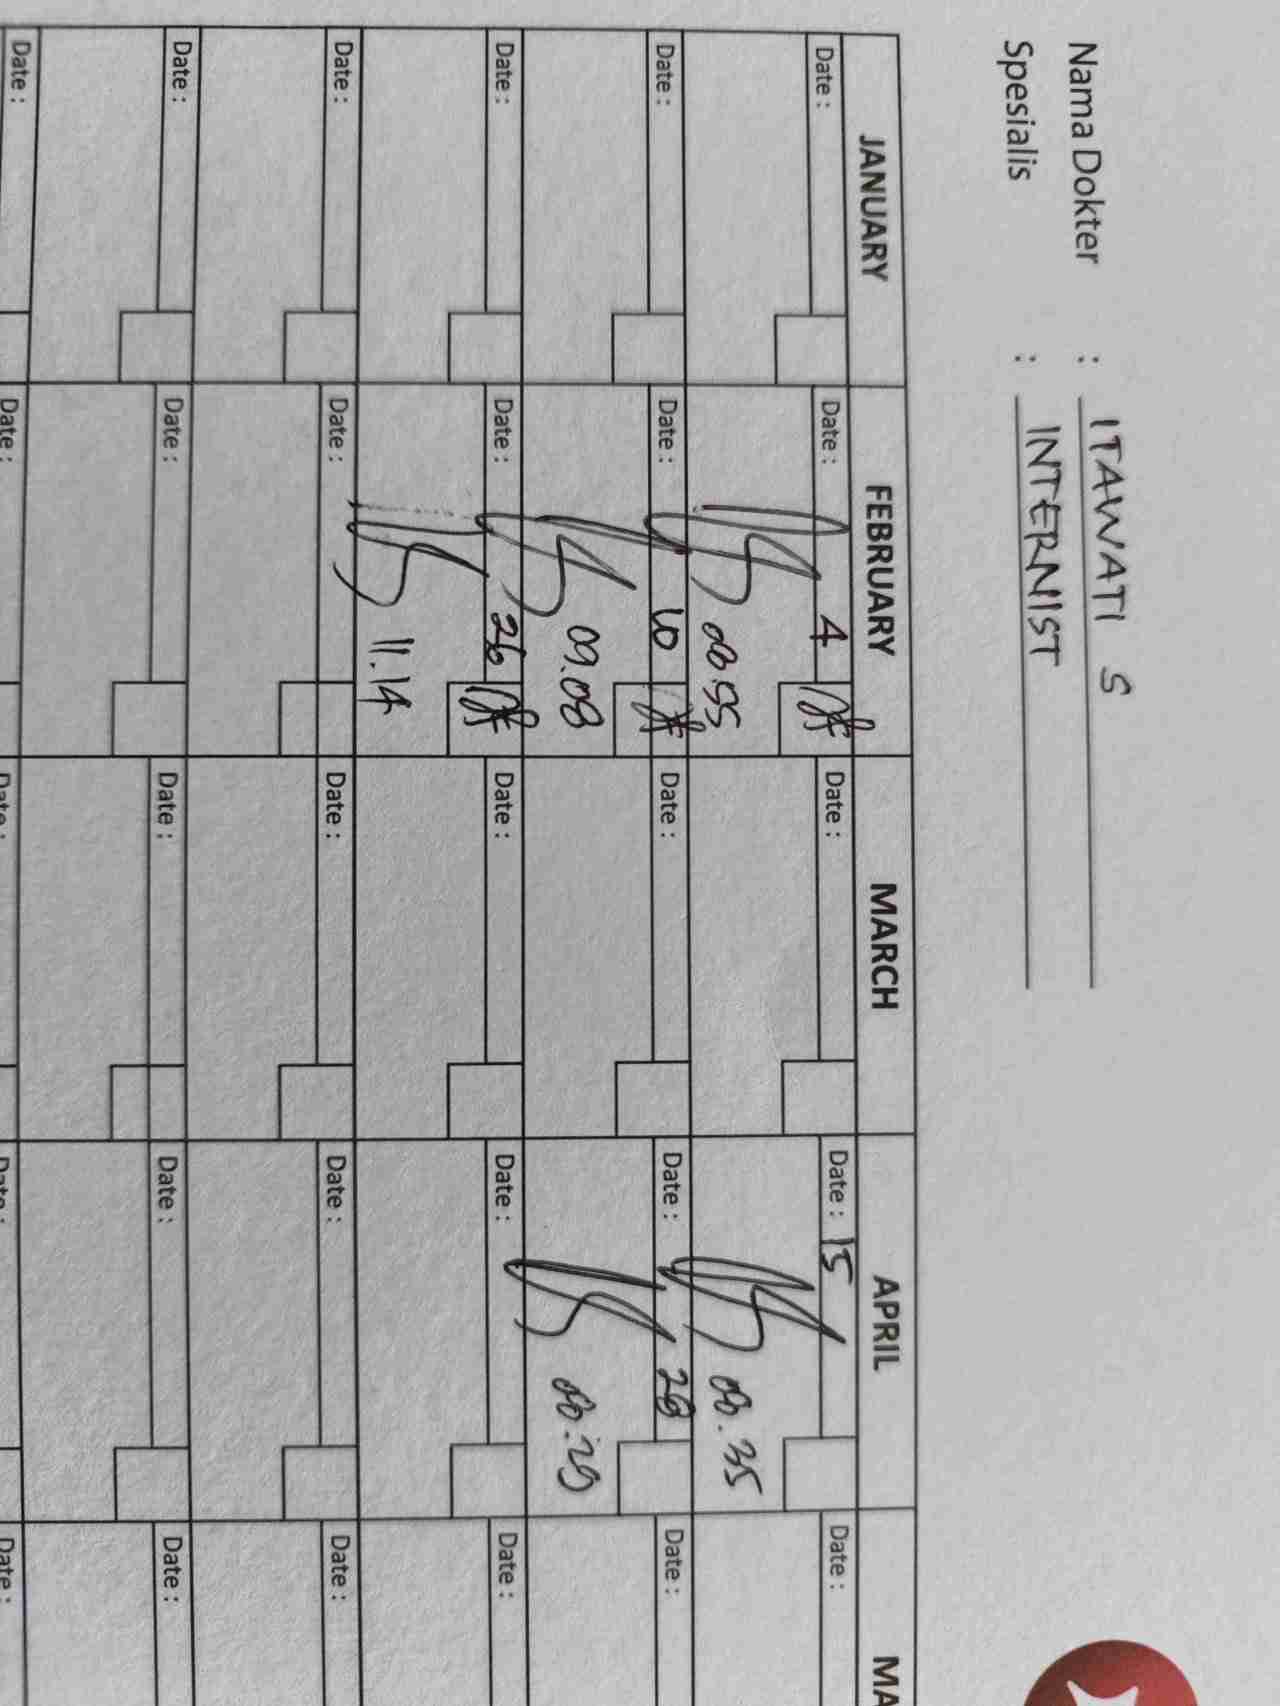 Nama Dokter : ITAWATI S
Spesialis : INTERNIST
JANUARY FEBRUARY MARCH APRIL MA
Date : Date : 4 Date : Date : 15 Date :
08.55 08.35
Date : Date : 10 Date : Date : 28 Date :
09.08 08.29
Date : Date : 26 Date : Date : Date :
11.14
Date : Date : Date : Date : Date :
Date : Date : Date : Date : Date :
Date : Date : Date : Date : Date :